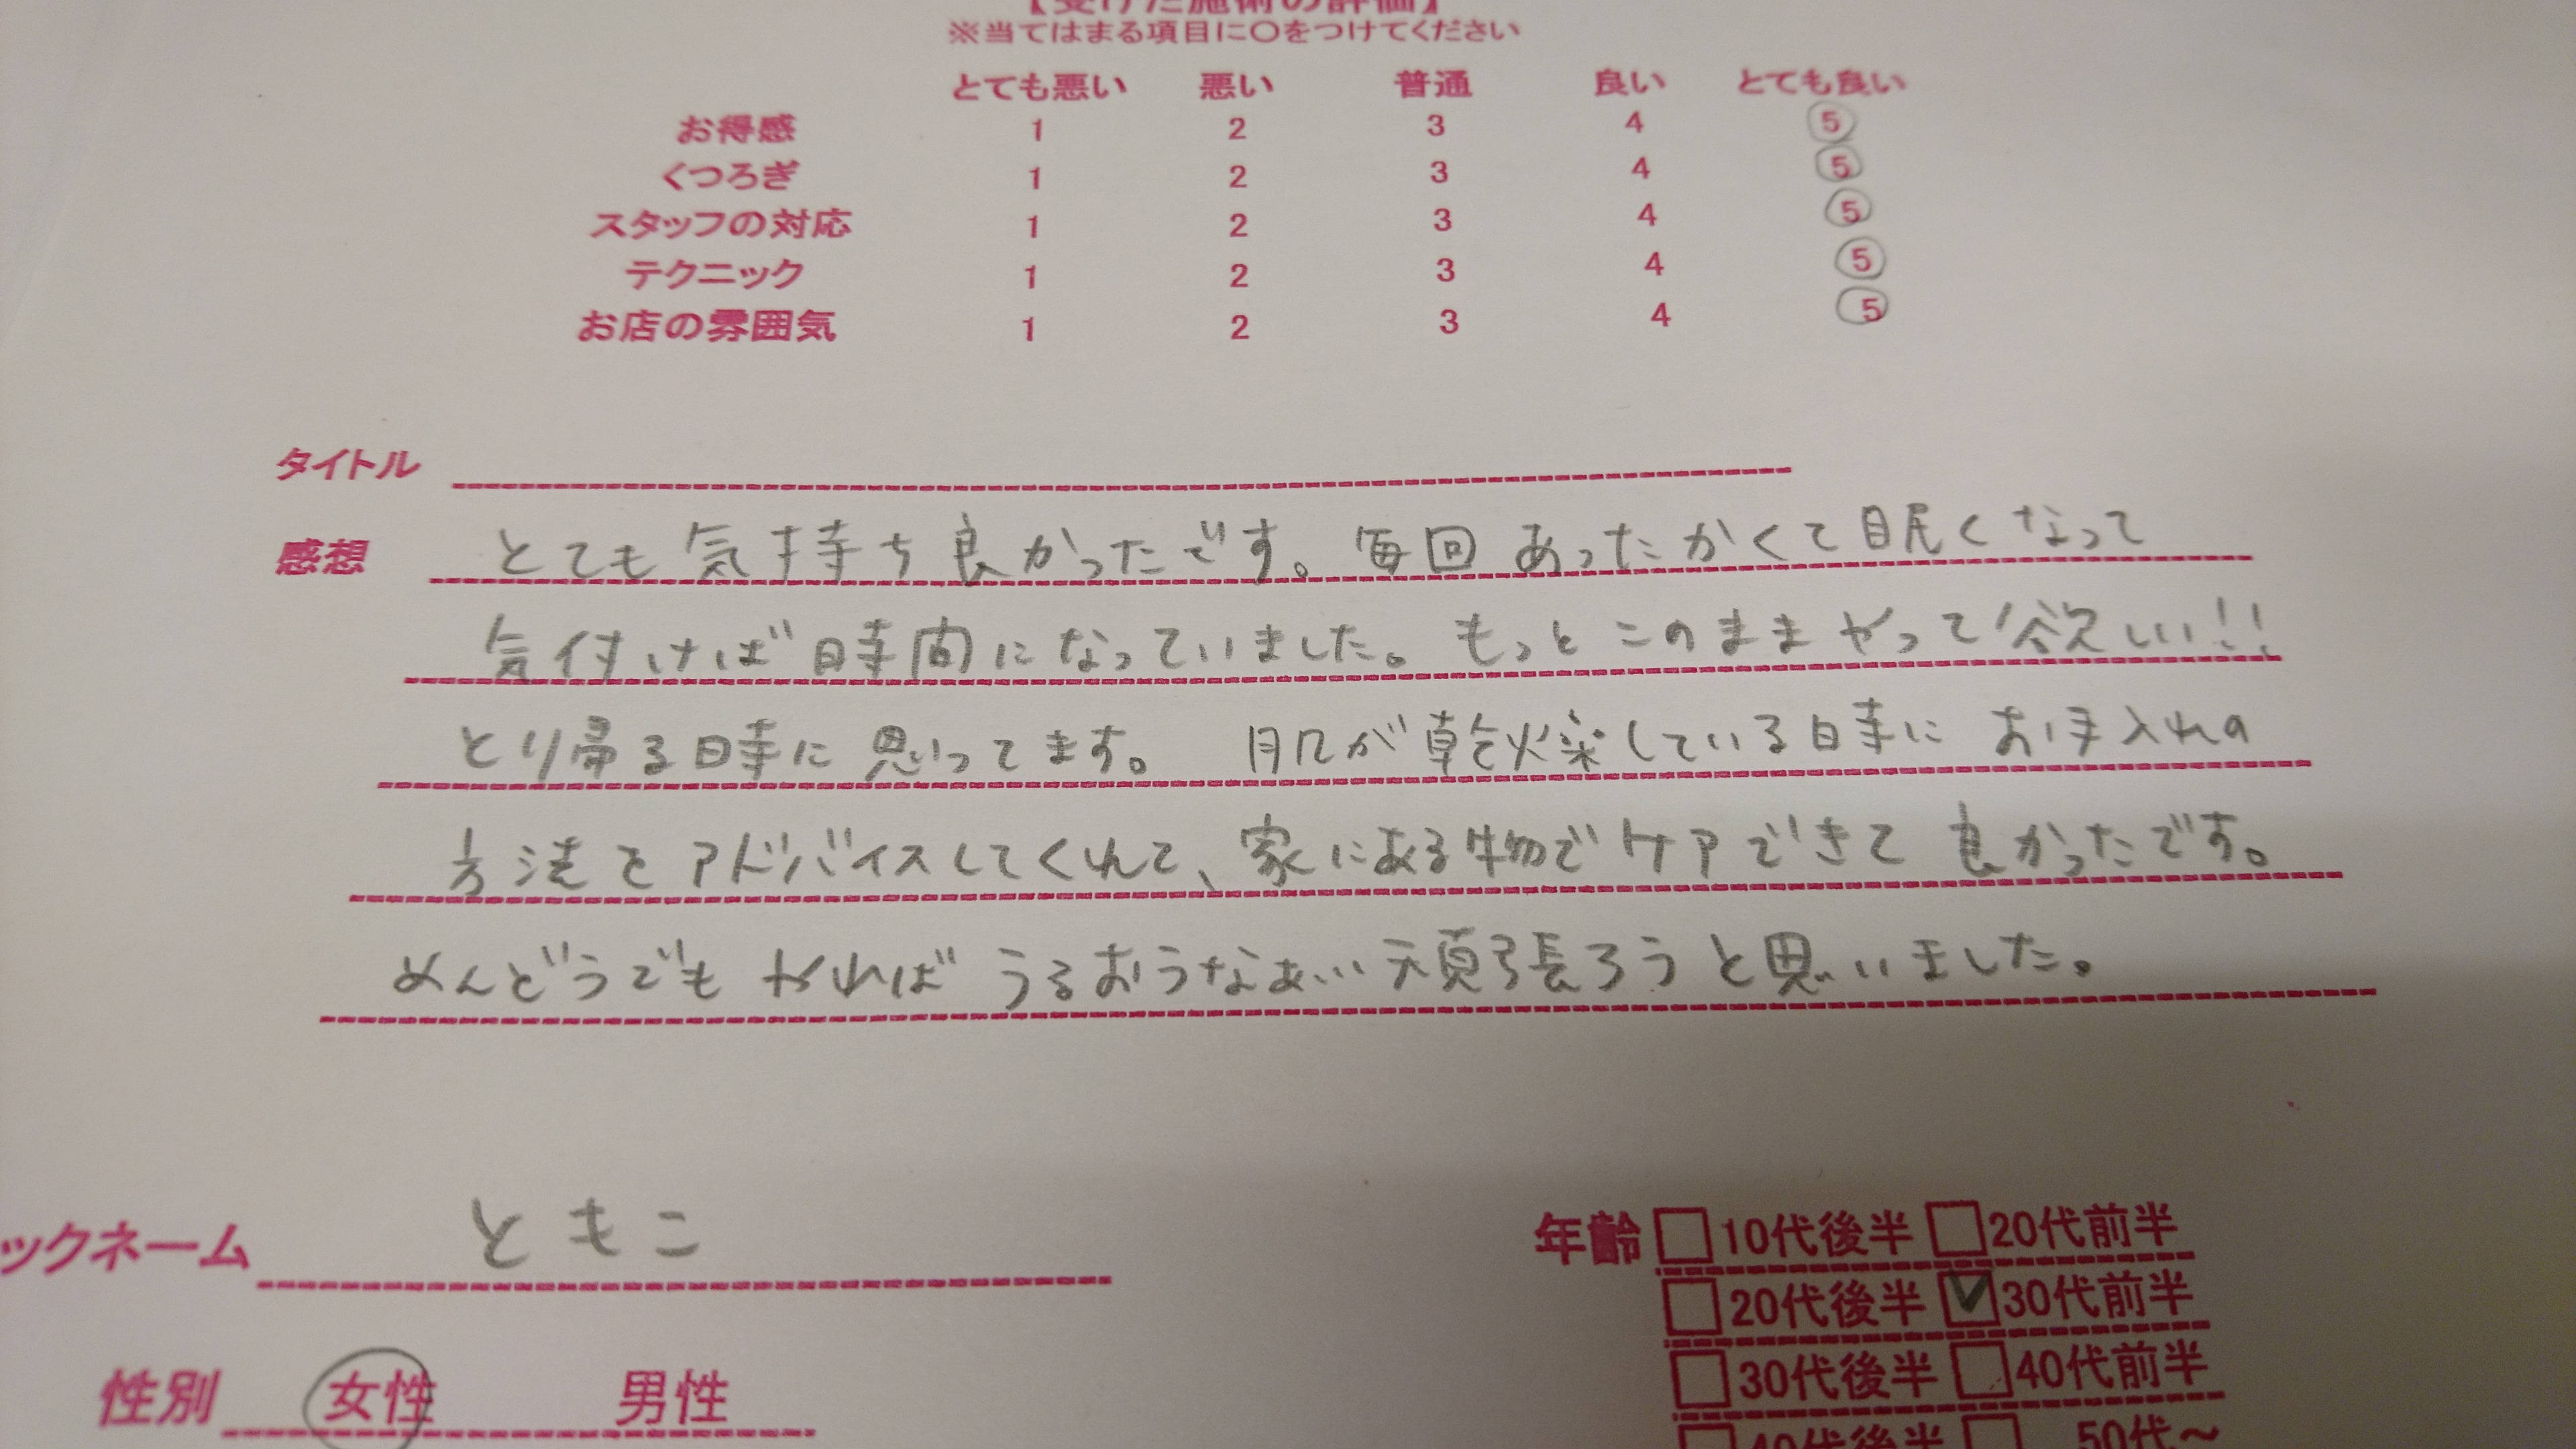 【受けた施術の評価】
※当てはまる項目に〇をつけてください
とても悪い 悪い 普通 良い とても良い
お得感 1 2 3 4 5
くつろぎ 1 2 3 4 5
スタッフの対応 1 2 3 4 5
テクニック 1 2 3 4 5
お店の雰囲気 1 2 3 4 5
タイトル
感想 とても気持ち良かったです。毎回あったかくて眠くなって
気付けば時間になっていました。もっとこのままやって欲しい!!
とり帰る時に思ってます。 肌が乾燥している時にお手入れの
方法をアドバイスしてくれて、家にある物でケアできて良かったです。
めんどうでもやればうるおうなぁ…頑張ろうと思いました。
ックネーム ともこ
年齢 10代後半 20代前半
20代後半 30代前半
30代後半 40代前半
40代後半 50代～
性別 女性 男性